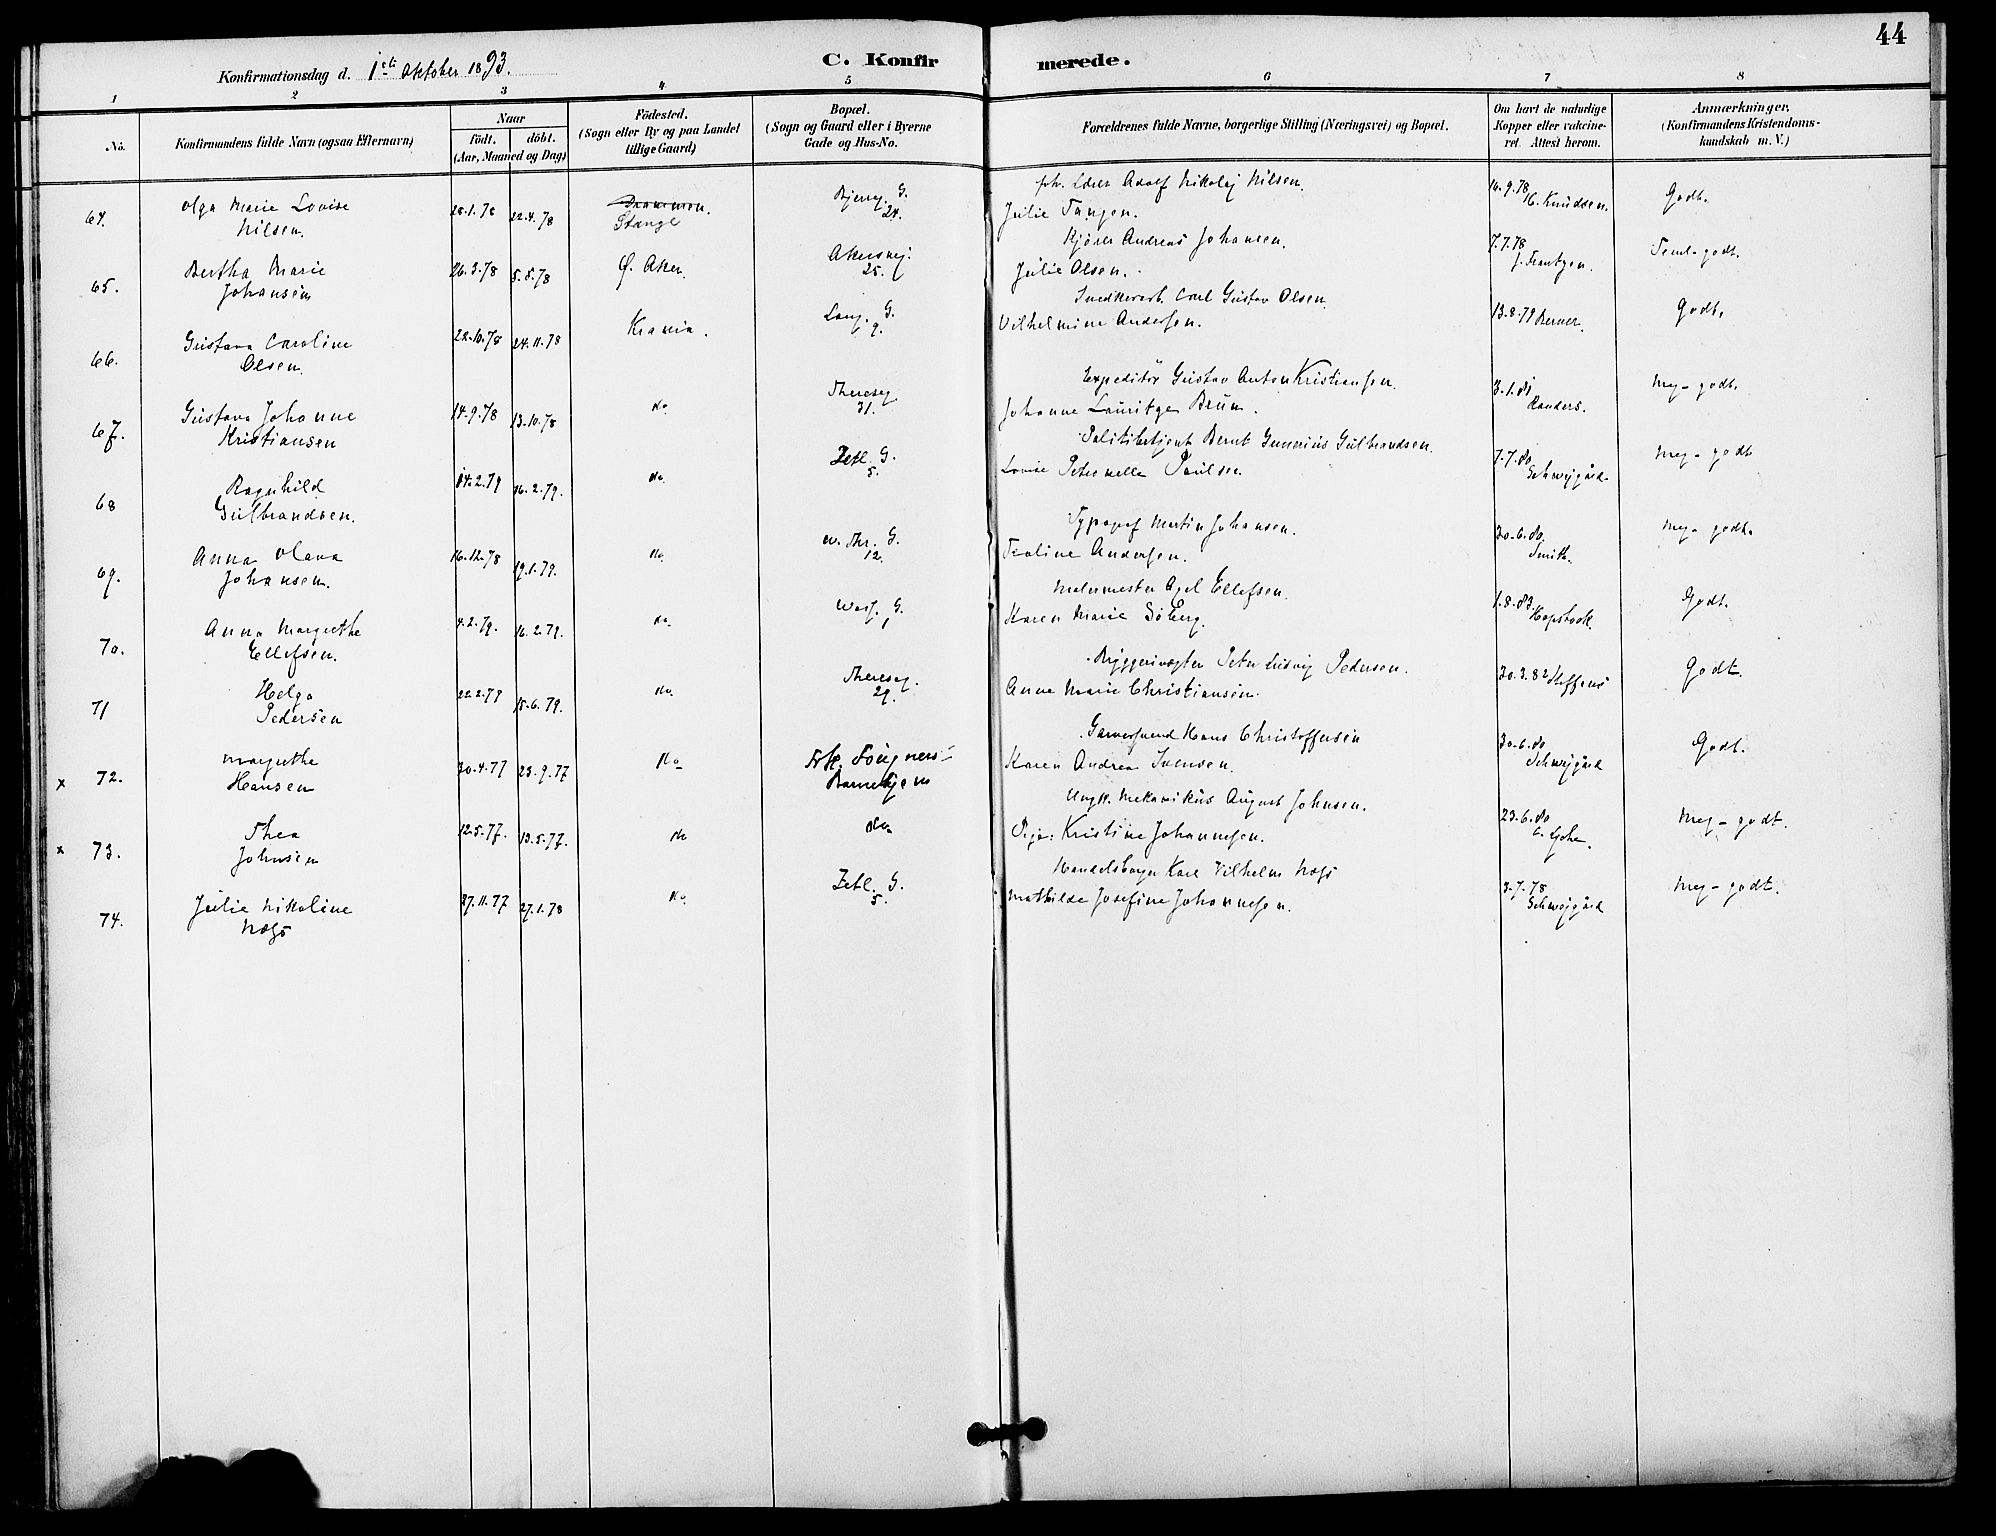 44
Konfirmationsdag d. 1ste Oktober 1893.
C. Konfirmerede.
1 2 3 4 5 6 7 8
No.
Konfirmandens fulde Navn (ogsaa Efternavn)
Naar
født. døbt.
(Aar, Maaned og Dag)
Födested.
(Sogn eller By og paa Landet
tillige Gaard)
Bopæl.
(Sogn og Gaard eller i Byerne
Gade og Hus-No.
Forældrenes fulde Navne, borgerlige Stilling (Næringsvei) og Bopæl.
Om havt de naturlige
Kopper eller vakcine-
ret. Attest herom.
Anmærkninger,
(Konfirmandens Kristendoms-
kundskab m. V.)
64. Olga Marie Lovise
Nilsen.
28.1.78 22.4.78
Drammen.
Stange
Bjerreg. G.
24.
Adolf Nikolej Nilsen.
Julie Tangen.
16.9.78 C. Knudsen.
Godt.
65. Bertha Marie
Johansen
26.3.78 5.5.78
Ø. Aker.
Akersvej.
25.
Kjører Andreas Johansen.
Julie Olsen.
7.7.78
J. Frantzen.
Teml-godt.
66. Gustava Caroline
Olsen.
22.10.78 24.11.78
Krania.
Lang. G.
9.
Snedkerarb. Carl Gustav Olsen
Vilhelmine Andersen.
13.8.79 Berner.
Godt.
67. Gustava Johanne
Kristiansen
14.9.78 13.10.78
do
Thereseg
31.
Expeditør Gustav Anton Kristiansen.
Johanne Lauritze Brun.
3.1.80
Randers.
Meg-godt.
68 Ragnhild
Gulbrandsen.
14.2.79 16.2.79.
do
Zetl. G.
5.
Politibetjent Bernt Gunerius Gulbrandsen.
Lovise Peternelle Paulsen
7.7.80
Schwejgård.
Meg-godt
69. Anna Olava
Johansen.
16.12.78 19.1.79.
do
w. Thr. G.
12.
Typograf Martin Johansen.
Teoline Andersen.
30.6.80
Smith.
Meg-godt.
70. Anna Margrethe
Ellefsen.
4.2.79. 16.2.79.
do
G.
1
Malermester Axel Ellefsen
Karen Marie Søberg.
1.8.83 Hopstock.
Godt.
71 Helga
Pedersen
22.2.79 15.6.79.
do
Thereseg.
29.
Bryggerivogter Peter Ludvig Pedersen.
Anne Marie Christiansen.
30.3.82 Steffens
Godt.
x 72. Margrethe
Hansen
30.4.77 23.9.77
do
Frk. Fougners
Barnehjem
Garversvend Hans Christoffersen
Karen Andrea Svensen.
30.6.80
Schwejgård
Godt.
x 73. Thea
Johnsen
12.5.77. 13.5.77.
do
do
Ungk. Mekanikus August Johnsen.
Pige: Kristine Johannesen.
23.6.80
Meg-godt.
74. Julie Nikoline
Næss
27.11.77 27.1.78
do
Zetl. G.
5.
Handelsborger Karl Vilhelm Næss
Mathilde Josefine Johannesen.
3.7.78
Schwejgård
Meg-godt.